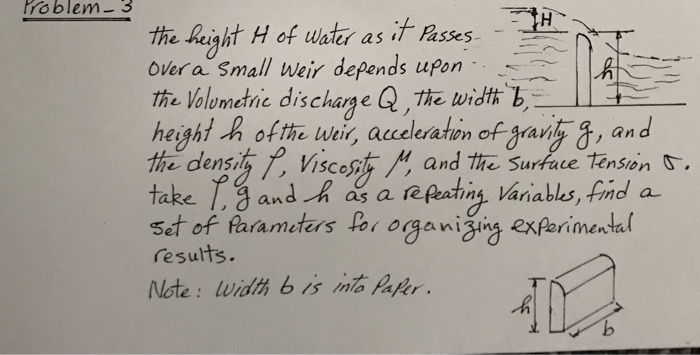 Problem_3
the height H of water as it Passes
over a small weir depends upon
the Volumetric discharge Q, the width b,
height h of the weir, acceleration of gravity g, and
the density ρ, Viscosity μ, and the Surface Tension σ.
take ρ, g and h as a repeating Variables, find a
set of Parameters for organizing experimental
results.
Note: Width b is into Paper.
H
h
h
b